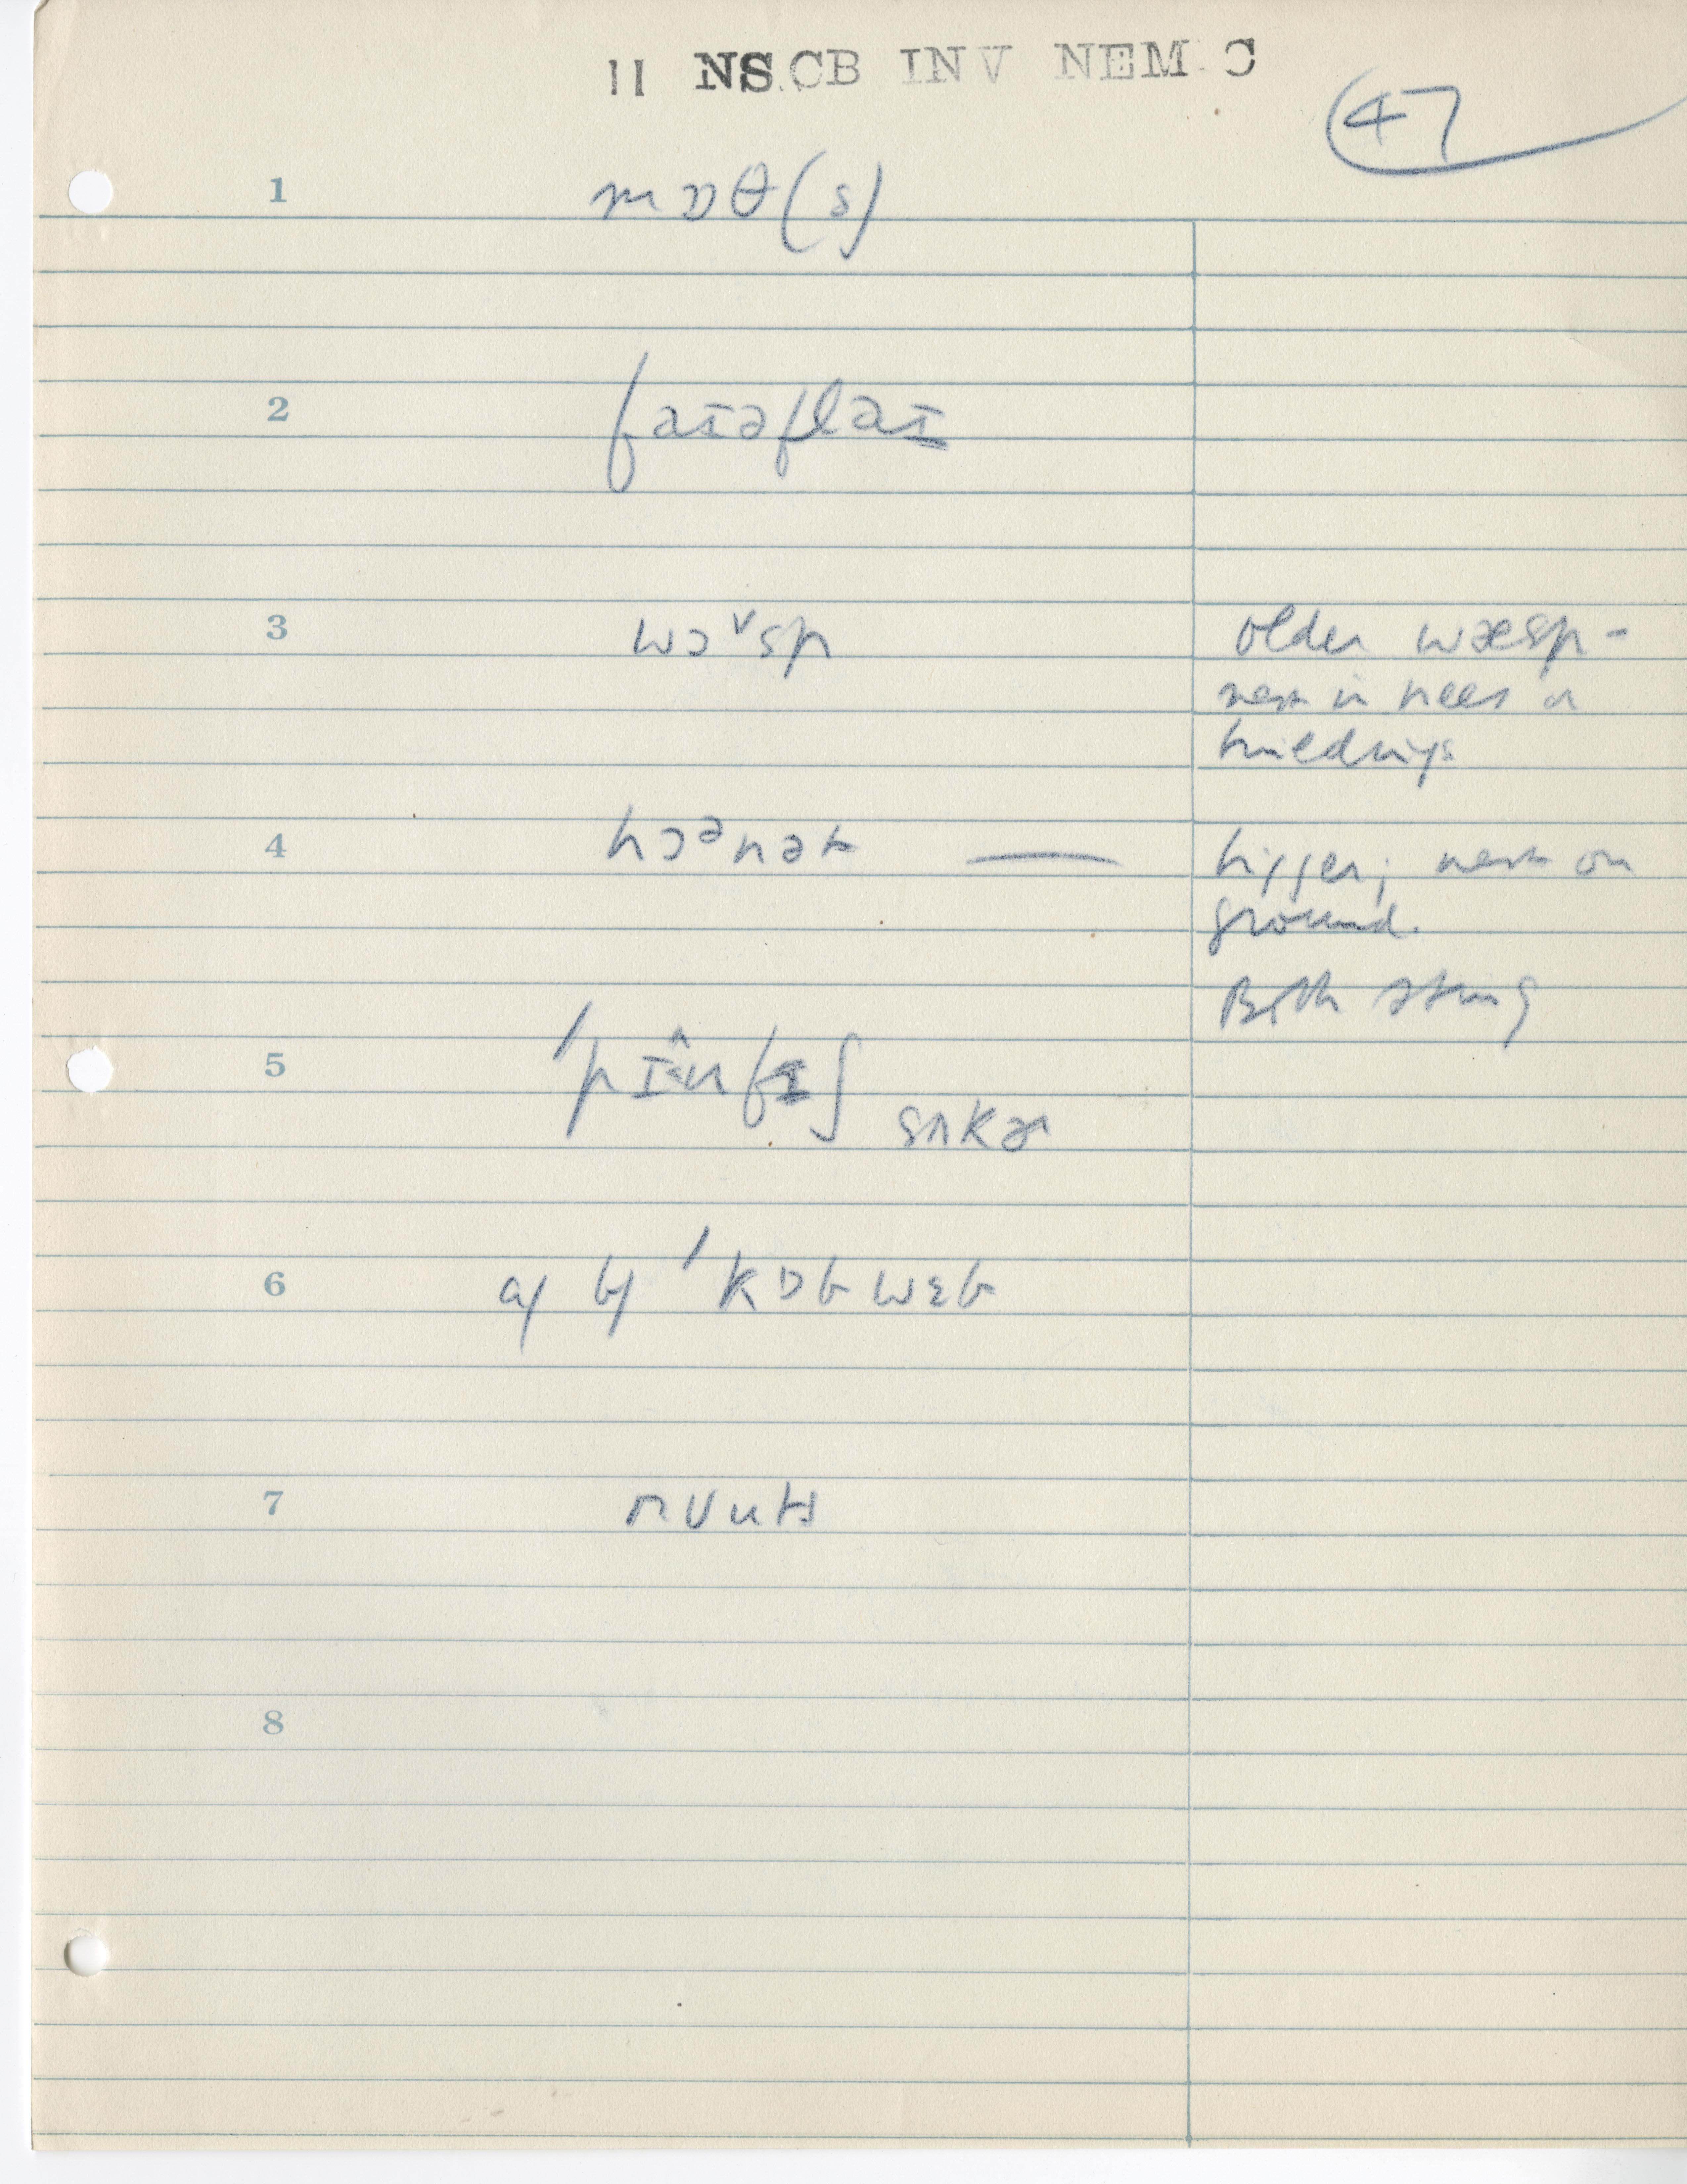 11 NS CB INV NEM C
47
1 mɒθ(s)
2 faɪəflaɪ
3 wɔ˅sp older wæsp-
nest in trees or
buildings
4 hɔᵊnət — bigger; nest on
ground.
Both sting
5 ˈpɪnfɪʃ
sʌkɚ
6 a/ b/ ˈkɒbwɛb
7 rʊuts
8